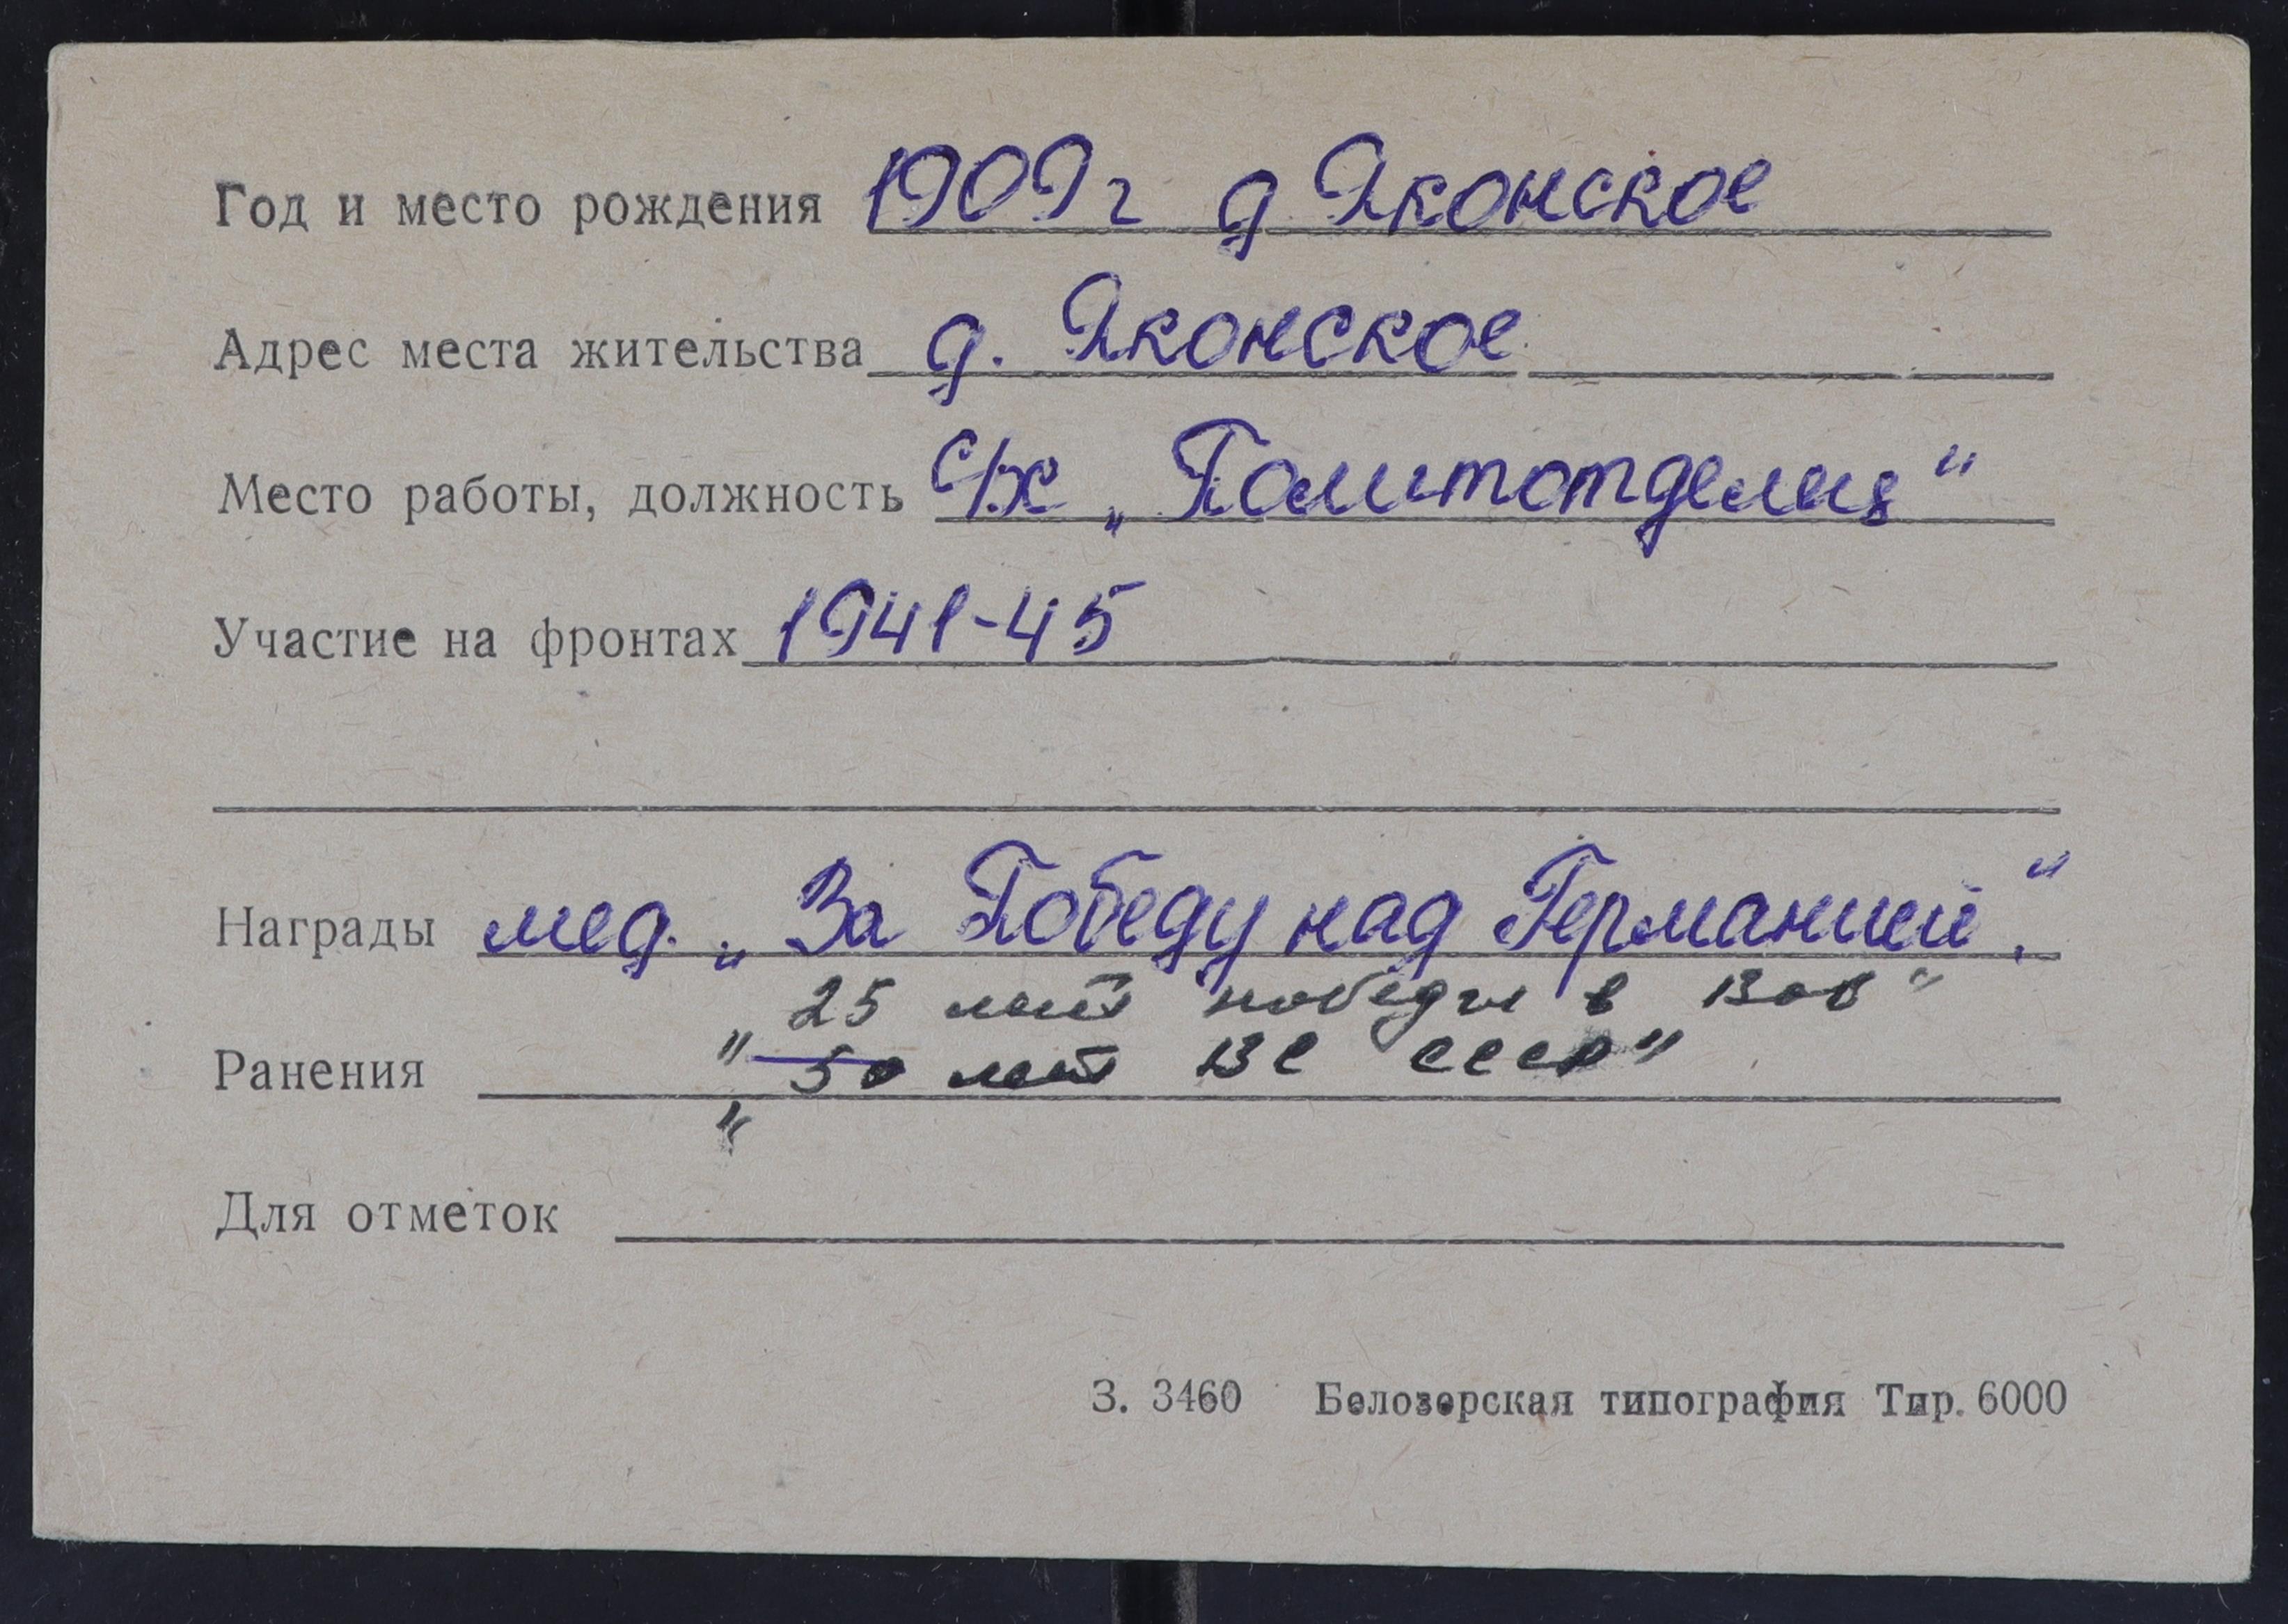 Год и место рождения 1909 г д Яконское
Адрес места жительства д. Яконское
Место работы, должность с/х „Политотделец“
Участие на фронтах 1941-45
Награды мед. „За Победу над Германией“.
25 лет победы в ВОВ"
Ранения " 50 лет ВС СССР"
"
Для отметок
З. 3460 Белозерская типография Тир. 6000